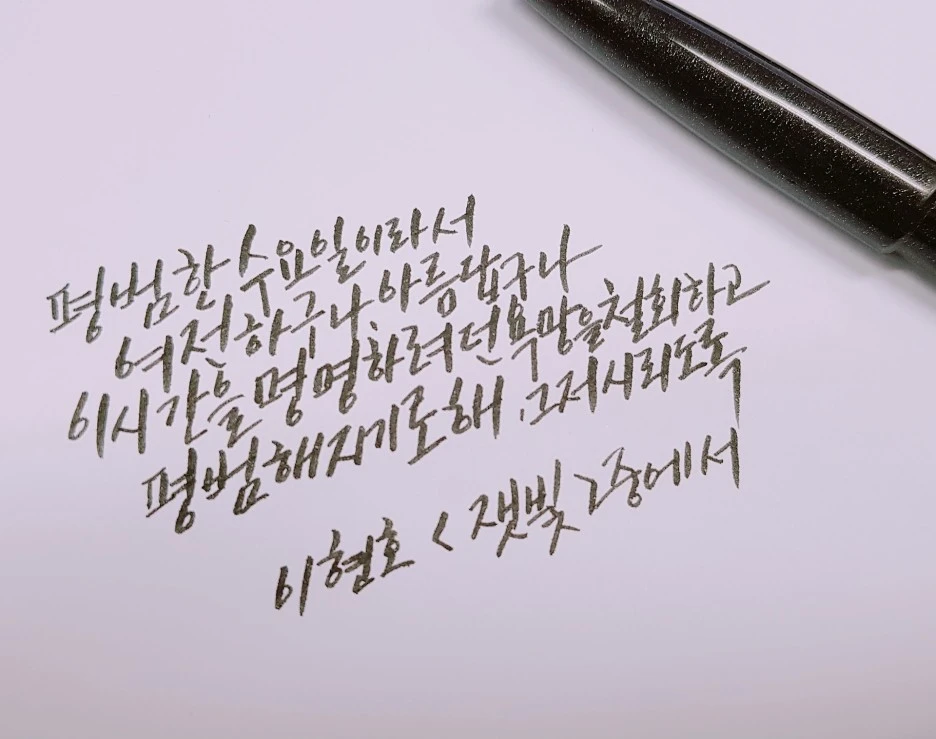 평범한 수요일이라서
여전하구나, 아름답구나
이 시간을 명명하려던 욕망을 철회하고
평범해지기로 해. 그저 시리도록
이현호 <잿빛> 중에서